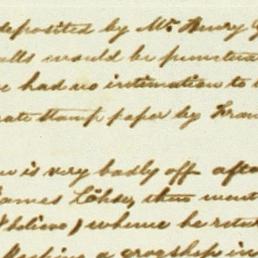 deposited by Mr. Henry
would be punctua
had no intimation to
rate stamp paper by Fran
is very badly off afte
James Löhse, then went
I believe) whence he retu
a grogship in